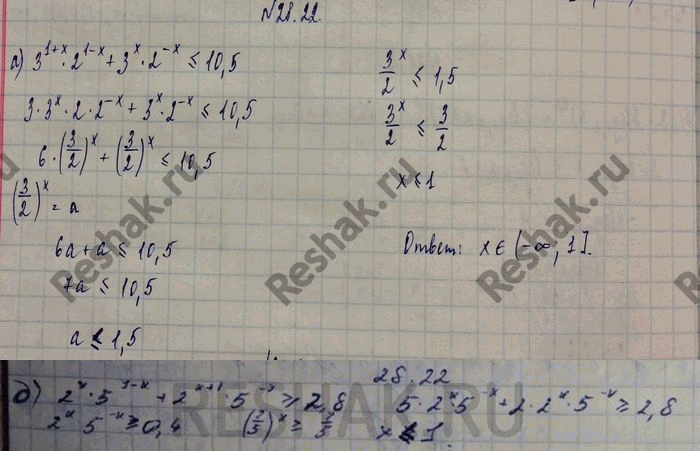 N28.22.
а) 3^{1+x} · 2^{1-x} + 3^x · 2^{-x} ≤ 10,5
3 · 3^x · 2 · 2^{-x} + 3^x · 2^{-x} ≤ 10,5
6 · (3/2)^x + (3/2)^x ≤ 10,5
(3/2)^x = a
6a + a ≤ 10,5
7a ≤ 10,5
a ≤ 1,5
3/2^x ≤ 1,5
3/2^x ≤ 3/2
x ≤ 1
Ответ: x ∈ (-∞, 1].
Reshak.ru
Reshak.ru
Reshak.ru
28.22
б) 2^x · 5^{1-x} + 2^{x+1} · 5^{-x} ≥ 2,8 5 · 2^x 5^{-x} + 2 · 2^x · 5^{-x} ≥ 2,8
2^x 5^{-x} ≥ 0,4 (2/5)^x ≥ 2/5 x ≤ 1.
RESHAK.RU